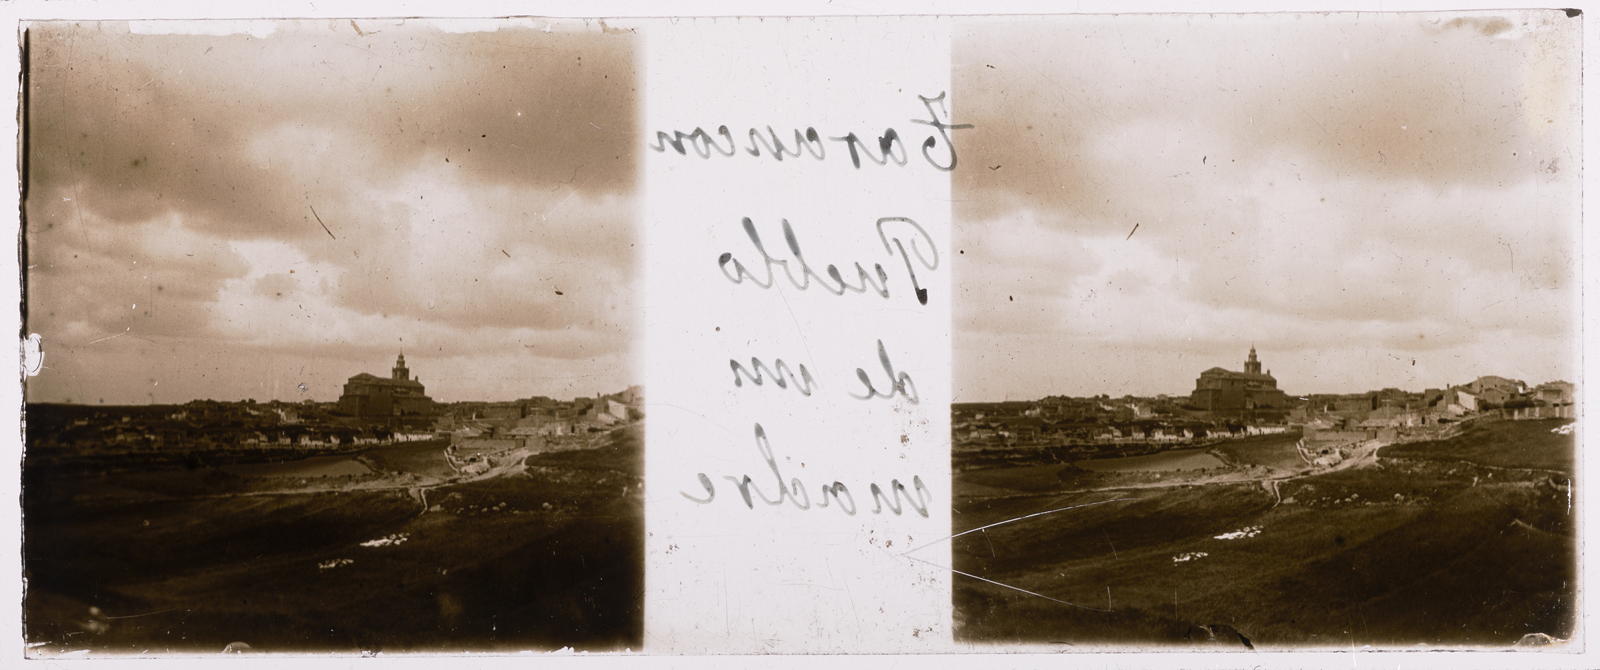 Tarancon
Pueblo
de mi
madre